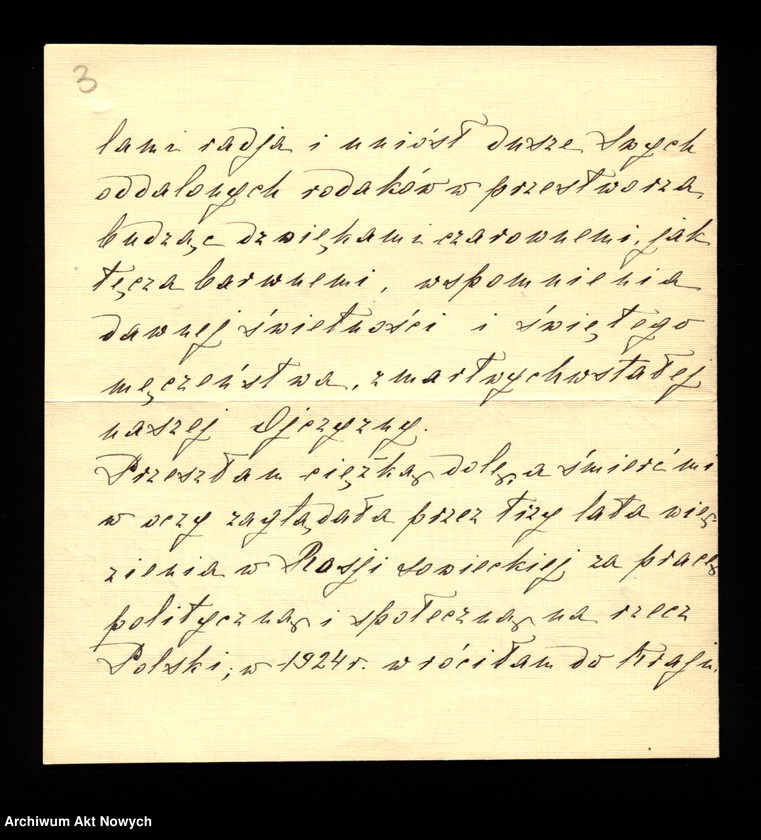 3
lami radja i uniósł dusze swych
oddalonych rodaków w przestworza,
budząc dźwiękami czarownemi, jak
tęcza barwnemi, wspomnienia
dawnej świetności i świętego
męczeństwa, zmartwychwstałej
naszej Ojczyzny.
Przeszłam ciężką dolę, a śmierć mi
w oczy zaglądała przez trzy lata wię
zienia w Rosji sowieckiej za pracę
polityczną i społeczną na rzecz
Polski; w 1924 r. wróciłam do Kraju.
Archiwum Akt Nowych